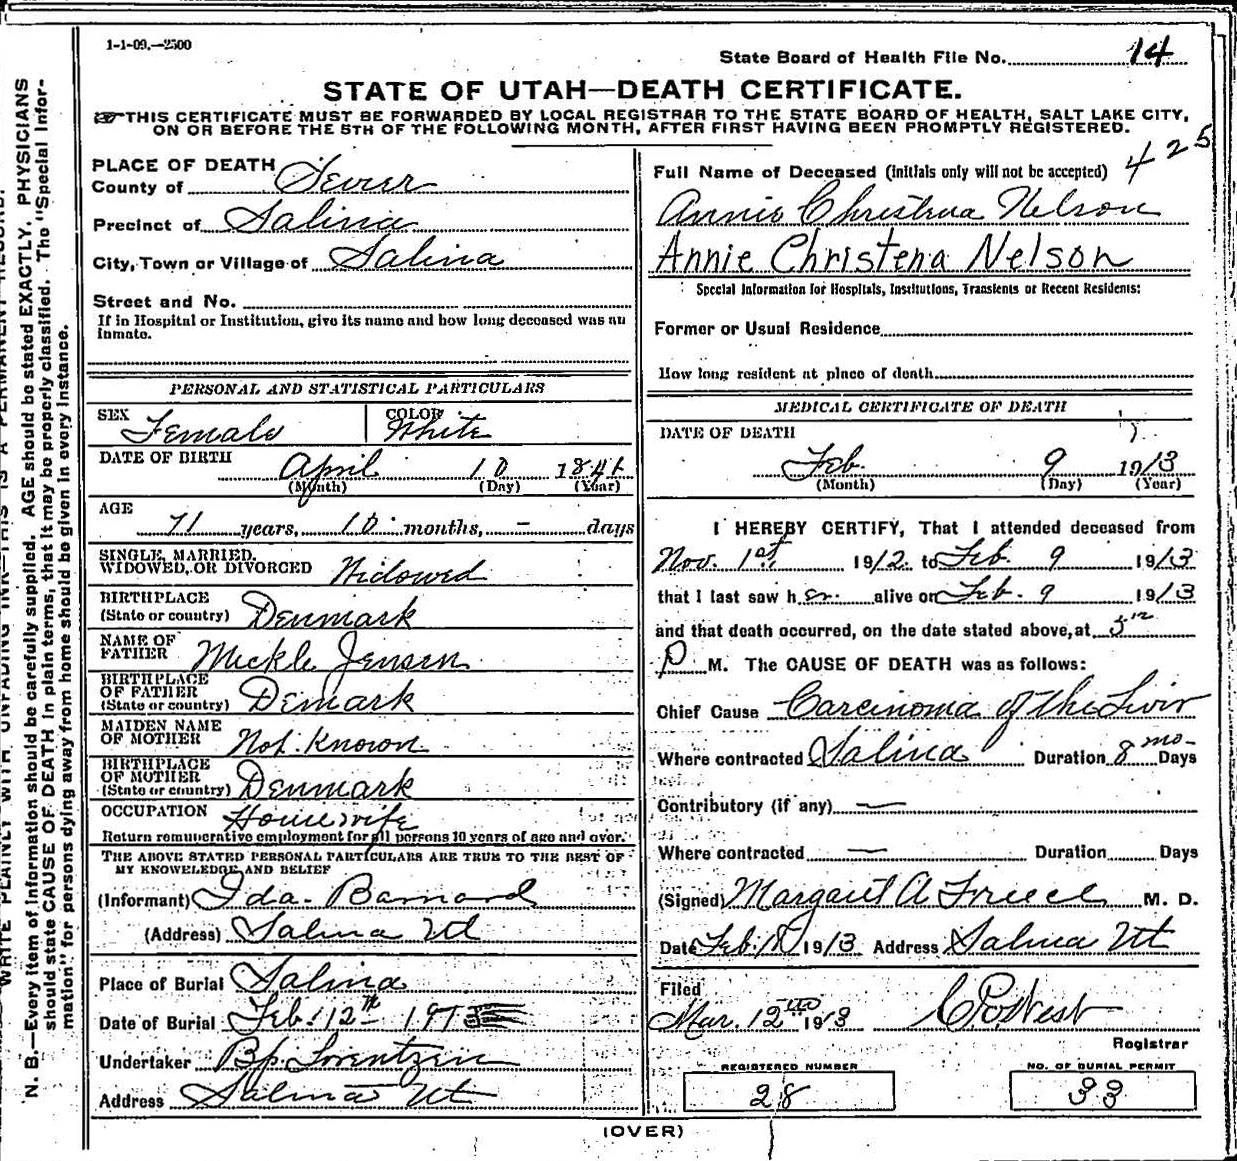 1-1-09.—2500
State Board of Health File No. 14
STATE OF UTAH—DEATH CERTIFICATE.
THIS CERTIFICATE MUST BE FORWARDED BY LOCAL REGISTRAR TO THE STATE BOARD OF HEALTH, SALT LAKE CITY,
ON OR BEFORE THE 5TH OF THE FOLLOWING MONTH, AFTER FIRST HAVING BEEN PROMPTLY REGISTERED.
PLACE OF DEATH
County of Sevier
Precinct of Salina
City, Town or Village of Salina
Street and No.
If in Hospital or Institution, give its name and how long deceased was an
inmate.
PERSONAL AND STATISTICAL PARTICULARS
SEX Female COLOR White
DATE OF BIRTH April 10 1841
(Month) (Day) (Year)
AGE 71 years, 10 months, - days
SINGLE, MARRIED,
WIDOWED, OR DIVORCED Widowed
BIRTHPLACE
(State or country) Denmark
NAME OF
FATHER Mickle Jensen
BIRTHPLACE
OF FATHER
(State or country) Demark
MAIDEN NAME
OF MOTHER Not Known
BIRTHPLACE
OF MOTHER
(State or country) Denmark
OCCUPATION Housewife
Return remunerative employment for all persons 10 years of age and over.
THE ABOVE STATED PERSONAL PARTICULARS ARE TRUE TO THE BEST OF
MY KNOWELEDGE AND BELIEF
(Informant) Ida Barnard
(Address) Salina Ut
Place of Burial Salina
Date of Burial Feb. 12th 1913
Undertaker Bp. Lorentzen
Address Salina Ut
425
Full Name of Deceased (initials only will not be accepted)
Annie Christena Nelson
Annie Christena Nelson
Special Information for Hospitals, Institutions, Transients or Recent Residents:
Former or Usual Residence
How long resident at place of death
MEDICAL CERTIFICATE OF DEATH
DATE OF DEATH
Feb. 9 1913
(Month) (Day) (Year)
I HEREBY CERTIFY, That I attended deceased from
Nov. 1st, 1912 to Feb. 9 1913
that I last saw her alive on Feb. 9 1913
and that death occurred, on the date stated above, at
P M. The CAUSE OF DEATH was as follows:
Chief Cause Carcinoma of the Livir
Where contracted Salina Duration 8 mo- Days
Contributory (if any) —
Where contracted — Duration Days
(Signed) Margaret A Freece M. D.
Date Feb. 1913 Address Salina Ut
Filed
Mar. 12 1913 C. P. West
Registrar
REGISTERED NUMBER
28
NO. OF BURIAL PERMIT
33
(OVER)
WRITE PLAINLY WITH UNFADING INK—THIS IS A PERMANENT RECORD.
N. B.—Every item of Information should be carefully supplied. AGE should be stated EXACTLY. PHYSICIANS
should state CAUSE OF DEATH in plain terms, that it may be properly classified. The "Special Infor-
mation" for persons dying away from home should be given in every instance.